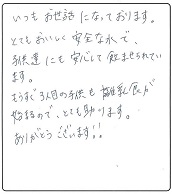 いつもお世話になっております。
とてもおいしく安全な水で、
子供達にも安心して飲ませられてい
ます。
もうすぐ3人目の子供も離乳食が
始まるので、とても助ります。
ありがとうございます!!